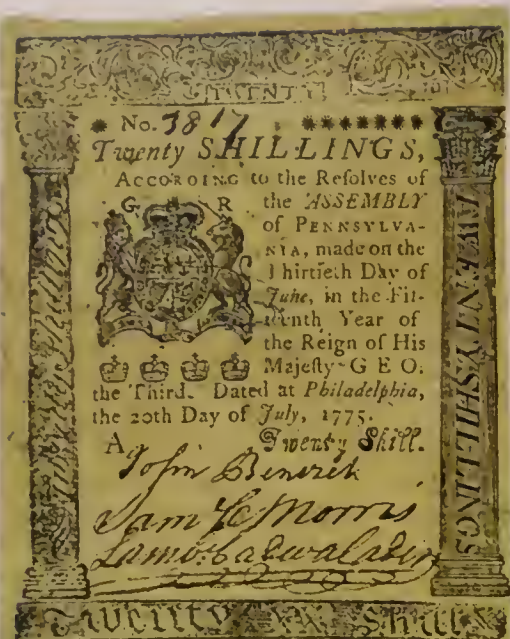 TWENTY
No. 3817
Twenty SHILLINGS,
ACCORDING to the Reſolves of
G R the ASSEMBLY
of PENNSYLVA-
NIA, made on the
Thirtieth Day of
June, in the Fif-
teenth Year of
the Reign of His
Majeſty GEO.
the Third. Dated at Philadelphia,
the 20th Day of July, 1775.
A Twenty Shill.
John
Saml C Morris
Lamb. Cadwalader
TWENTY SHILLINGS
Twenty Shill